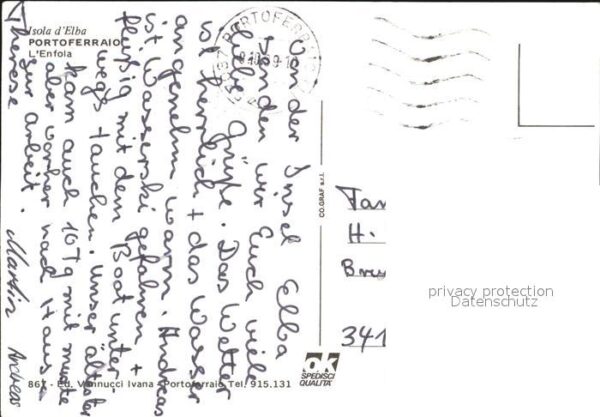 Isola d'Elba
PORTOFERRAIO
L'Enfola
PORTOFERRAIO
Von der Insel Elba
senden wir Euch viele
liebe Grüße. Das Wetter
ist herrlich + das Wasser
angenehm warm. Andreas
ist Wasserski gefahren +
fleißig mit dem Boot unter-
wegs + tauchen. Unser ältester
kam auch 10 Tg mit mußte
aber vorher nach Hause
zur Arbeit.
Therese Martin Andreas
CO.GRAF s.r.l.
Fam
H.
Bre
341
privacy protection
Datenschutz
ok
SPEDISCI
QUALITA'
867 - Ed. Vannucci Ivana - Portoferraio Tel. 915.131